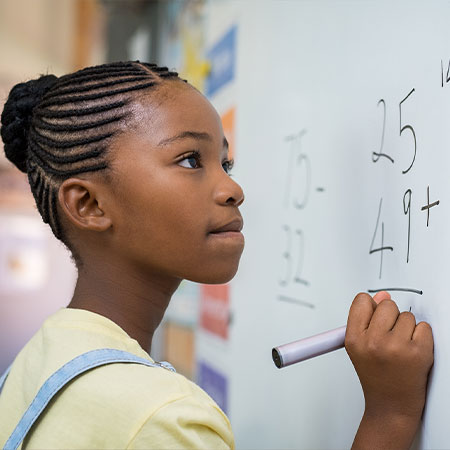 75 -
32
25
49 +
14